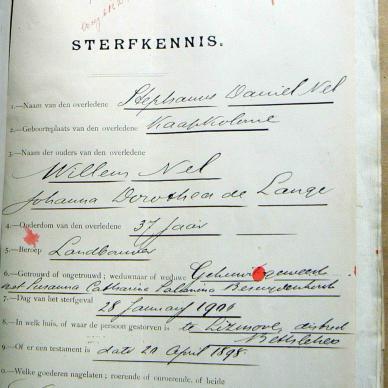 STERFKENNIS.
1.—Naam van den overledene Stephanus Daniel Nel
2.—Geboorteplaats van den overledene Kaapkolonie
3.—Naam der ouders van den overledene
Willem Nel
Johanna Dorothea de Lange
4.—Ouderdom van den overledene 37 jaar
5.—Beroep Landbouwer
6.—Getrouwd of ongetrouwd; weduwnaar of weduwe
met Susanna Catharina Bezuidenhout
7.—Dag van het sterfgeval
28 January 1901
8.—In welk huis, of waar de persoon gestorven is te district
Bethlehem
9.—Of er een testament is dato 20 April 1898
10.—Welke goederen nagelaten; roerende of onroerende, of beide